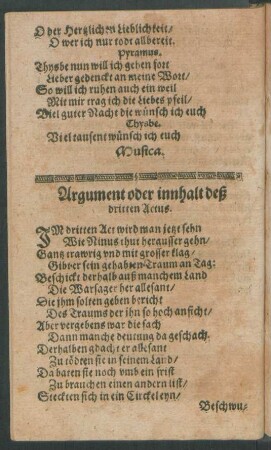 O der Hertzlichen Lieblichkeit/
O wer ich nur todt allbereit.
Pyramus.
Thysbe nun will ich gehen fort
Lieber gedenckt an meine Wort/
So will ich ruhen auch ein weil
Mit mir trag ich die Liebes pfeil/
Viel guter Nacht die wünsch ich euch
Thysbe.
Viel tausent wünsch ich euch
Musica.
Argument oder innhalt deß
dritten Actus.
IM dritten Act wird man jetzt sehn
Wie Ninus thut herausser gehn/
Gantz trawrig vnd mit grosser klag/
Gibt er sein gehabten Traum an Tag:
Beschickt derhalb auß manchem Land
Die Warsager her allesant/
Die jhm solten geben bericht
Des Traums der jhn so hoch anficht/
Aber vergebens war die sach
Dann manche deutung da geschach.
Derhalben gdacht er allesant
Zu tödten sie in seinem Land/
Da baten sie noch vmb ein frist
Zu brauchen einen andern list/
Steckten sich in ein Circkel eyn/
Beschwu/